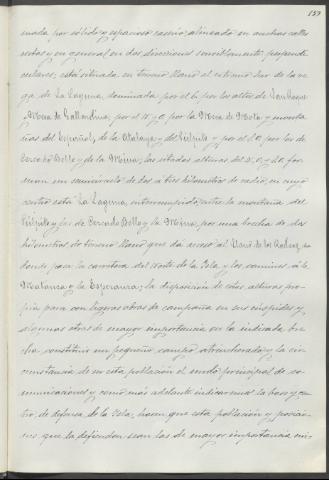 157
mada por sólido y espacioso caserío, alineado en anchas calles
rectas y en general en dos direcciones sensiblemente perpendi-
culares; está situada, en terreno llano al extremo Sur de la ve-
ga de La Laguna, dominada por el E. por los altos de
y Mesa de Gallardina, por el N. y O. por la Mesa de Mota y monta-
ñas del Español, de la Atalaya y del Púlpito y por el S.O. por los de
Cercado Bello y de la Mina; las citadas alturas del N. O. y S.O. for-
man un semicírculo de dos a tres kilómetros de radio, en cuyo
centro está La Laguna, interrumpido, entre la montaña del
Púlpito y las de Cercado Bello y la Mina, por una brecha de dos
kilómetros de terreno llano que da acceso al llano de los Rodeos, por
donde pasa la carretera del Norte de la Isla, y los caminos á la
Matanza y la Esperanza; la disposición de estas alturas pro-
pia para con ligeras obras de campaña en sus cúspides y
algunas otras de mayor importancia en la indicada bre-
cha, constituir un pequeño campo atrincherado y la cir-
cunstancia de ser esta población el nudo principal de co-
municaciones y como más adelante indicaremos la base y cen-
tro, de defensa de la Isla, hacen que esta población y posicio-
nes que la defienden sean las de mayor importancia mi-